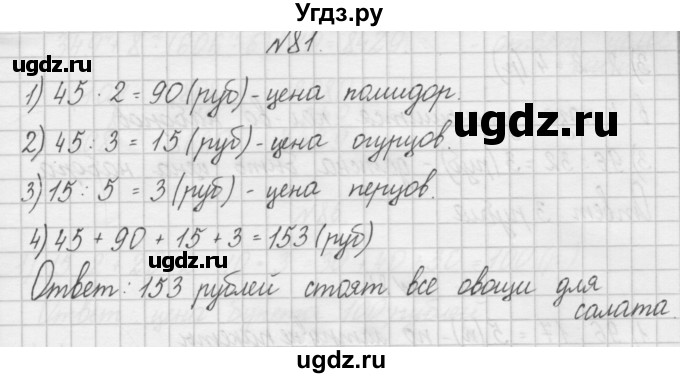 Угдз.ру
№81.
1) 45 · 2 = 90 (руб) - цена помидор.
2) 45 : 3 = 15 (руб) - цена огурцов.
3) 15 : 5 = 3 (руб) - цена перцов.
4) 45 + 90 + 15 + 3 = 153 (руб)
Ответ: 153 рублей стоят все овощи для
салата.
ugdz.ru
ugdz.ru
ugdz.ru
ugdz.ru
ugdz.ru